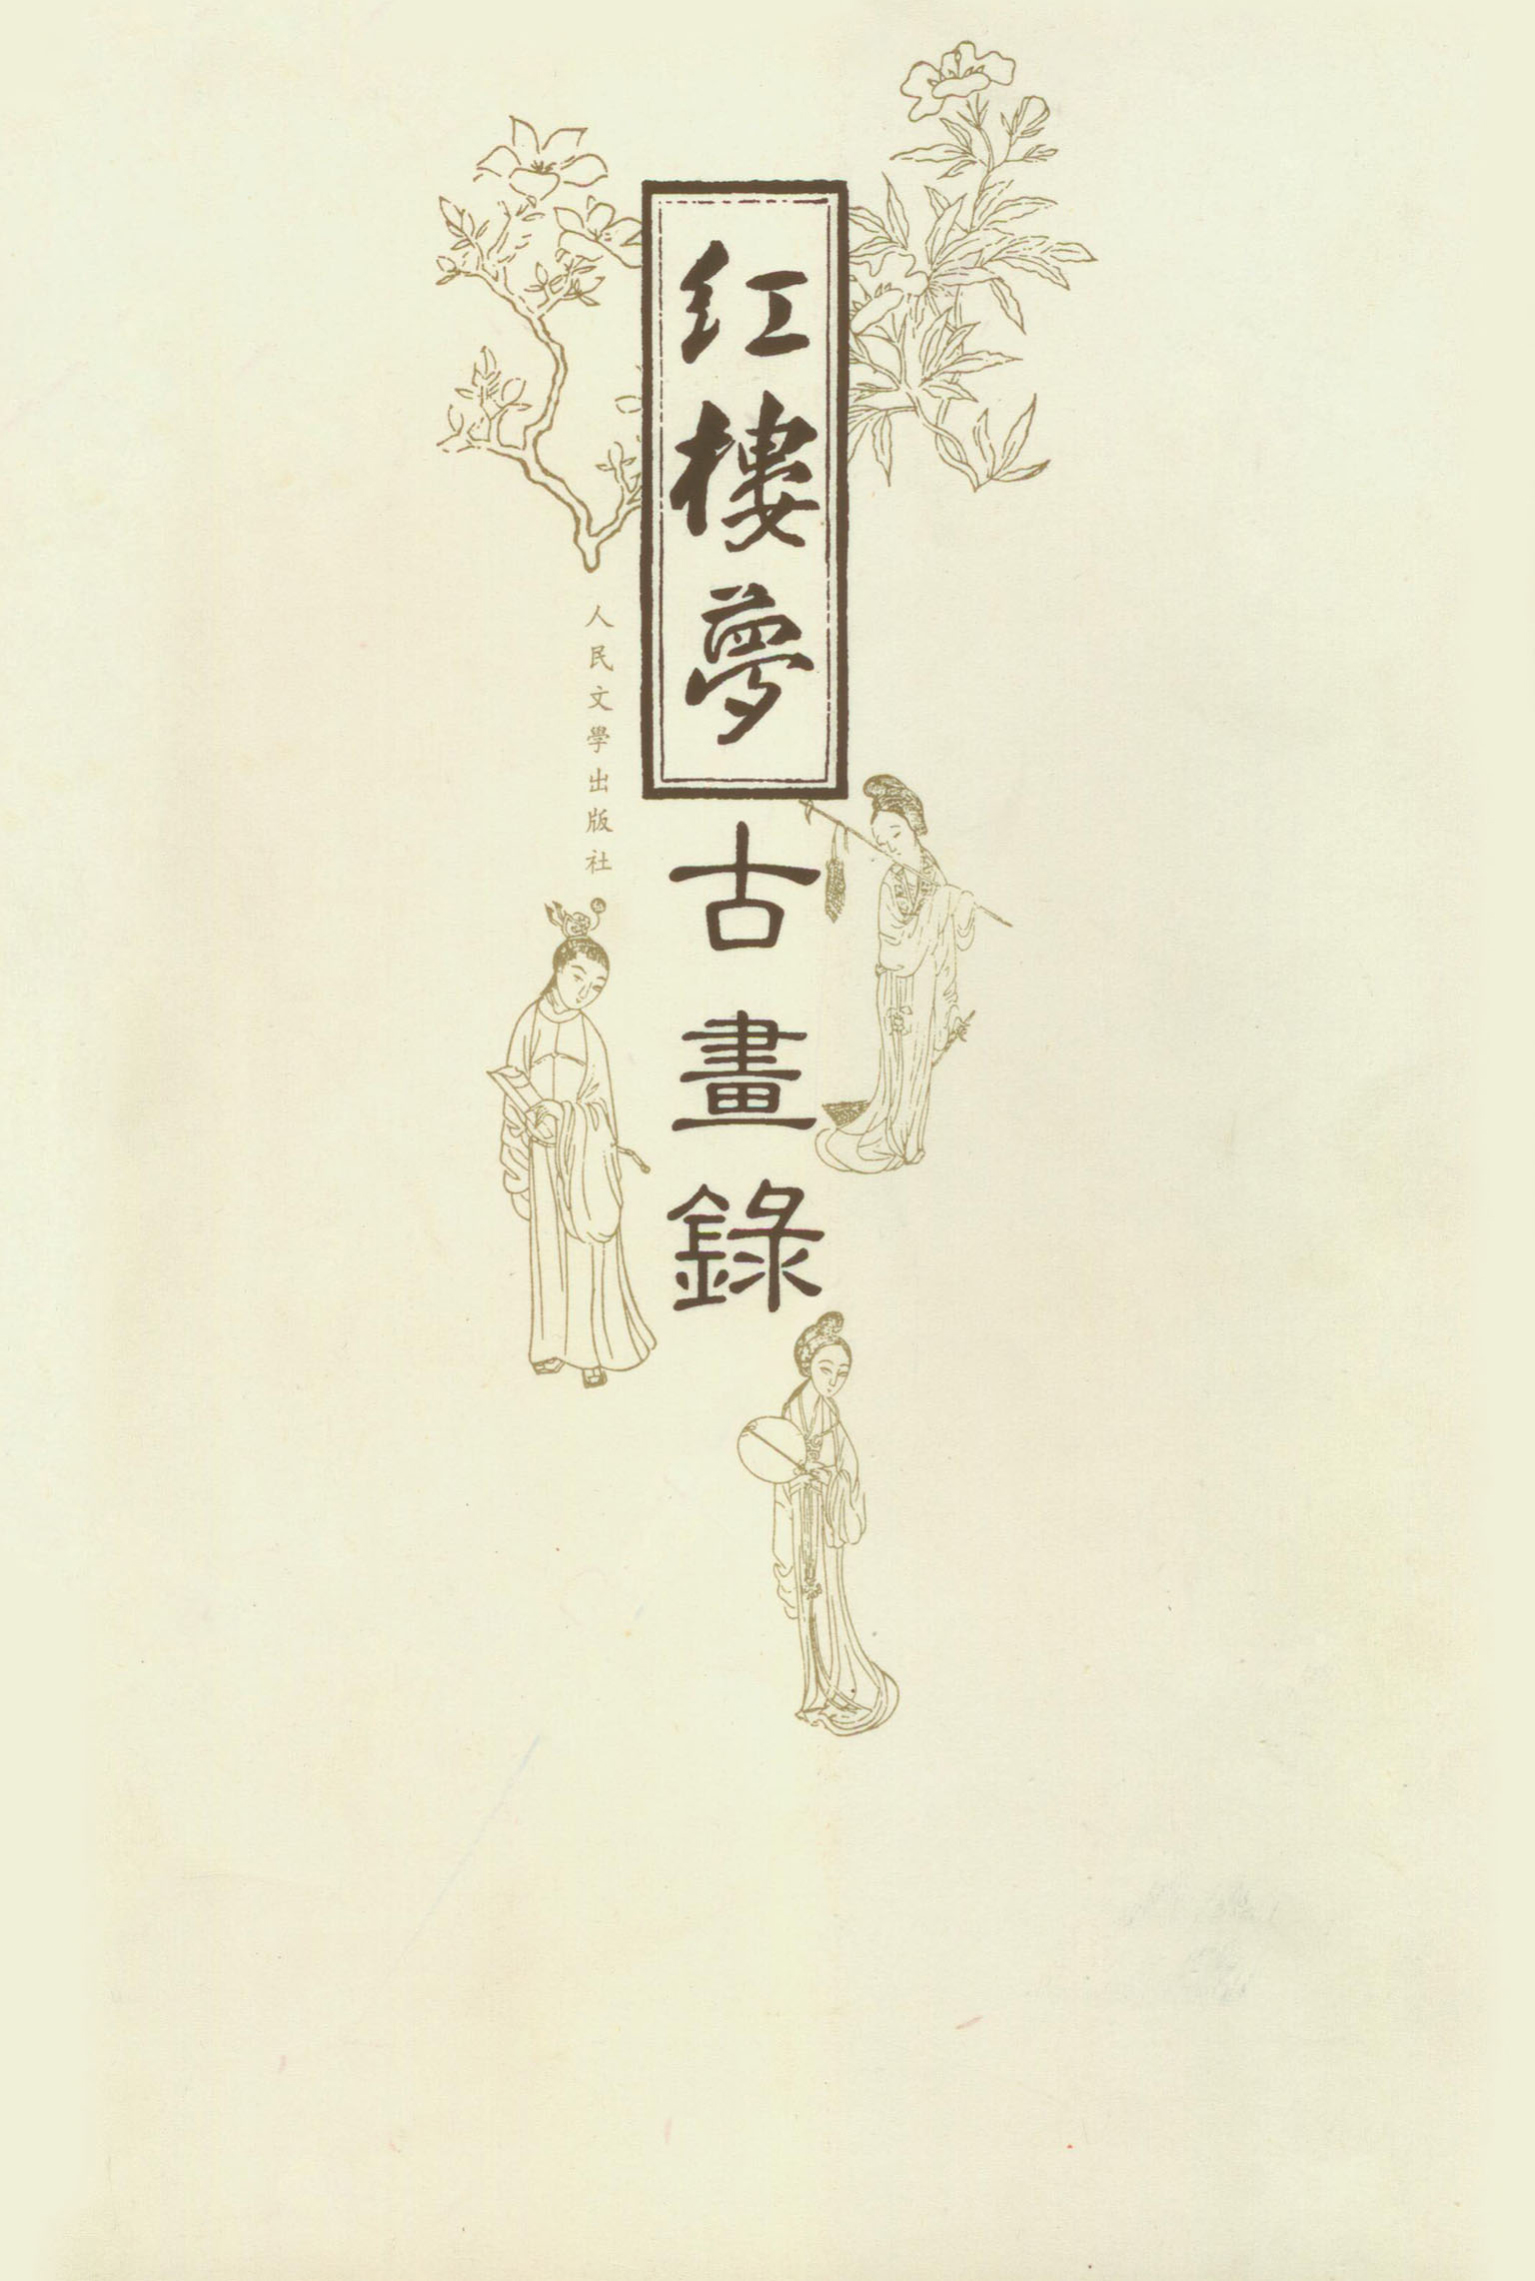 红樓夢
古畫錄
人民文學出版社